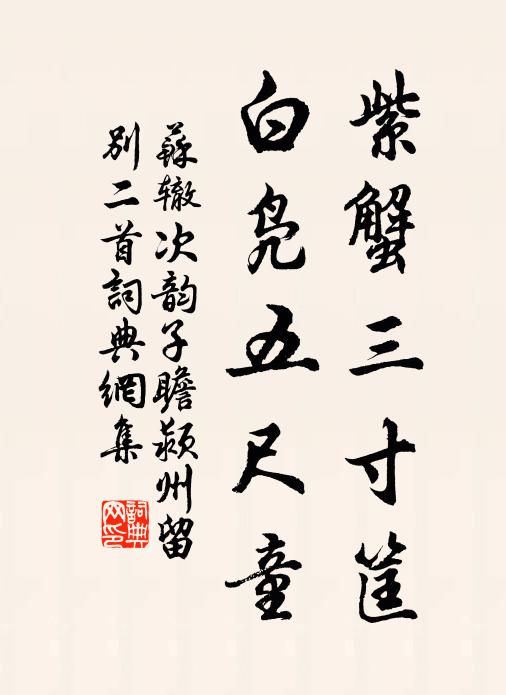 紫蟹三寸筐
白凫五尺童
蘇辙次韵子瞻颍州留
別二首詞典網集
詞典
网印